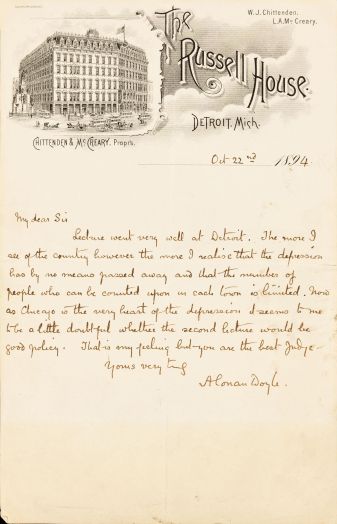 W.J. Chittenden.
L.A. Mc Creary.
The
Russell House.
Detroit, Mich.
Chittenden & McCreary. Propr's.
Oct 22nd 1894
My dear Sir
Lecture went very well at Detroit. The more I
see of the country however the more I realise that the depression
has by no means passed away and that the number of
people who can be counted upon in each town is limited. Now
as Chicago is the very heart of the depression it seems to me
to be a little doubtful whether the second lecture would be
good policy. That is my feeling but you are the best Judge -
Yours very truly
A Conan Doyle.